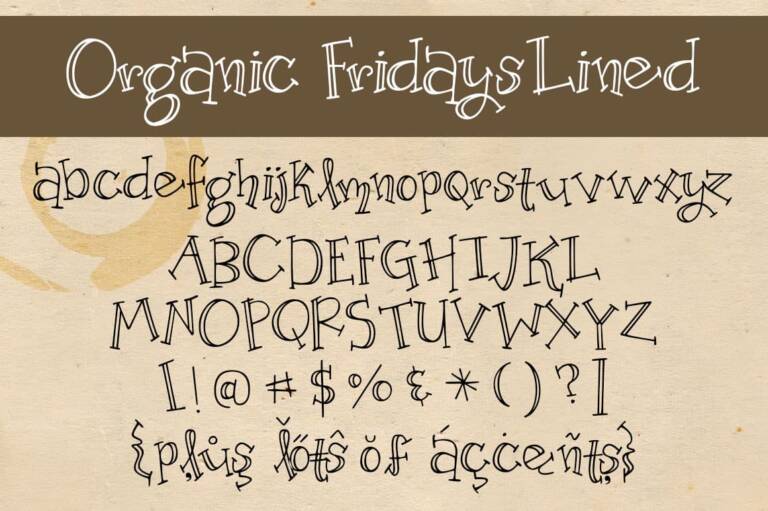 Organic Fridays Lined
abcdefghijklmnopqrstuvwxyz
ABCDEFGHIJKL
MNOPQRSTUVWXYZ
[!@#$%&*()?]
{p̦l̦ůş ľőťŝ ŏf áçċeñţș}